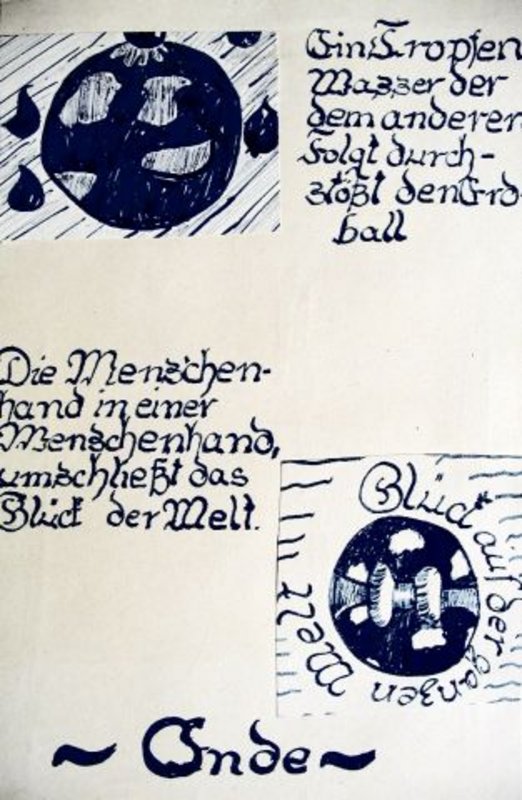 Ein Tropfen
Wasser der
dem anderen
folgt durch-
stößt den Erd
ball
Die Menschen-
hand in einer
Menschenhand,
umschließt das
Glück der Welt.
Glück auf der ganzen Welt
~ Ende ~